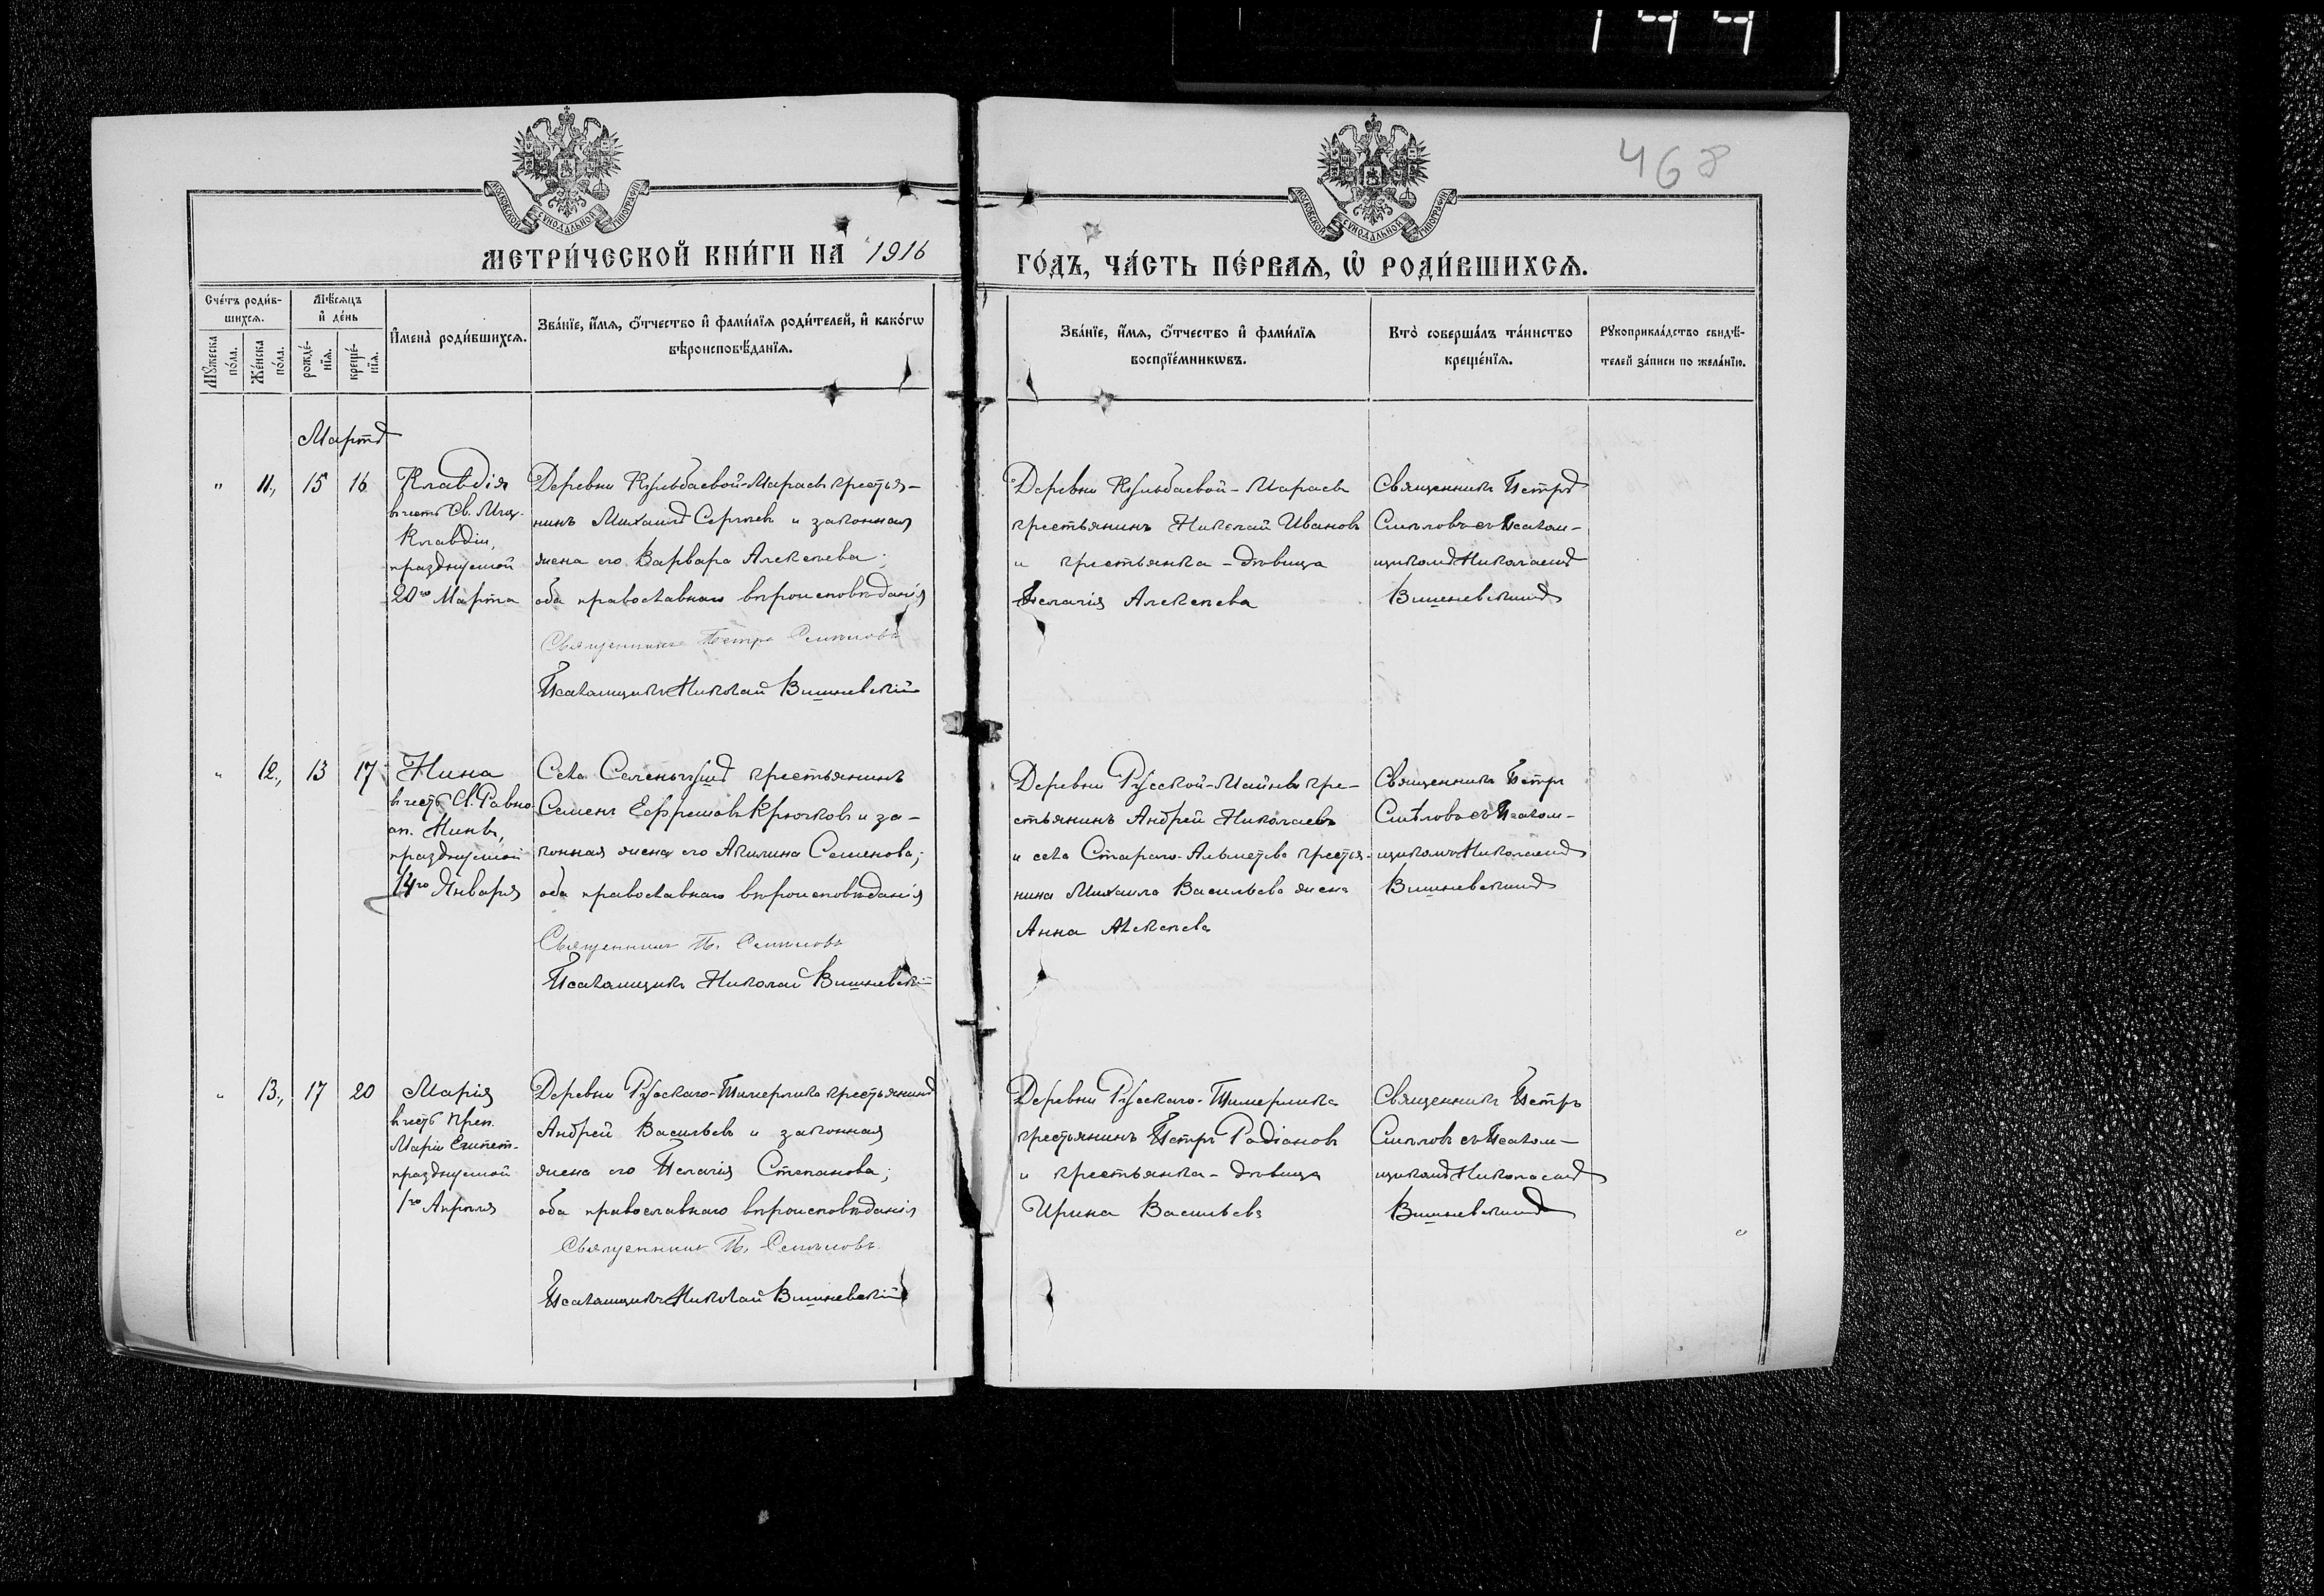 144
468
МОСКОВСКОЙ СѴНОДАЛЬНОЙ ТИПОГРАФІИ
МОСКОВСКОЙ СѴНОДАЛЬНОЙ ТИПОГРАФІИ
МЕТРИ́ЧЕСКОЙ КНИ́ГИ НА 1916
ГО́ДЪ, ЧА́СТЬ ПЕ́РВАѦ, Ѡ҆ РОДИ́ВШИХСѦ.
Сче́тъ роди́в-
шихсѧ.
Мꙋ́жеска
по́ла.
Же́нска
по́ла.
Мѣ́сѧцъ
и҆ де́нь
рожде́-
нїѧ.
креще́-
нїѧ.
И҆мена̀ роди́вшихсѧ.
Зва́нїе, и҆́мѧ, ѻ҆́тчество и҆ фами́лїѧ роди́телей, и҆ како́гѡ
вѣроисповѣ́данїѧ.
Зва́нїе, и҆́мѧ, ѻ҆́тчество и҆ фами́лїѧ
воспрїе́мникѡвъ.
Кто̀ соверша́лъ та́инство
креще́нїѧ.
Рꙋкоприкла́дство свидѣ́-
телей за́писи по жела́нїю.
Мартъ
" 11, 15 16
Клавдія
въ честь Св. Муч.
Клавдіи,
празднуемой
20го Марта
Деревни Кульбаевой-Марасы крестья-
нинъ Михаилъ Сергѣевъ и законная
жена его Варвара Алексѣева;
оба православнаго вѣроисповѣданія
Священникъ Петръ
Псаломщикъ Николай Вишневскій
Деревни Кульбаевой-Марасы
крестьянинъ Николай Ивановъ
и крестьянка-дѣвица
Пелагія Алексѣева
Священникъ Петръ
съ Псалом-
щикомъ Николаемъ
Вишневскимъ
" 12, 13 17
Нина
въ честь Св. Равно-
ап. Нины,
празднуемой
14го Января
Села Селенгушъ крестьянинъ
Семенъ Ефремовъ Крючковъ и за-
конная жена его Акилина Семенова;
оба православнаго вѣроисповѣданія
Священникъ П.
Псаломщикъ Николай Вишневскій
Деревни Русской-Майны кре-
стьянинъ Андрей Николаевъ
и села Стараго-Альметьева крестья-
нина Михаила Васильева жена
Анна Алексѣева
Священникъ Петръ
съ Псалом-
щикомъ Николаемъ
Вишневскимъ
" 13, 17 20
Марія
въ честь Преп.
Маріи Египет-
празднуемой
1го Апрѣля
Деревни Русскаго-Тимерлика крестьянинъ
Андрей Васильевъ и законная
жена его Пелагія Степанова;
оба православнаго вѣроисповѣданія
Священникъ П.
Псаломщикъ Николай Вишневскій
Деревни Русскаго-Тимерлика
крестьянинъ Петръ Радіоновъ
и крестьянка-дѣвица
Ирина Васильева
Священникъ Петръ
съ Псалом-
щикомъ Николаемъ
Вишневскимъ